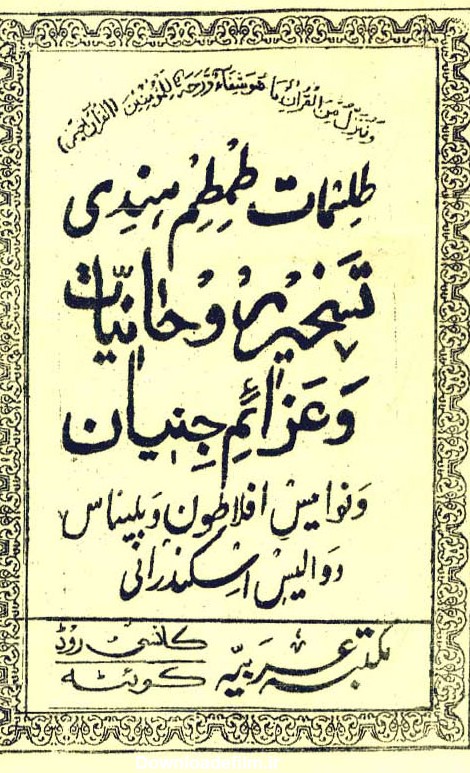 وَنُنَزِّلُ مِنَ الْقُرْآنِ مَا هُوَ شِفَاءٌ وَّرَحْمَةٌ لِّلْمُؤْمِنِيْنَ (القرآن المجيد)
طلِسمات طُمطُم هِندِی
تَسخیرِ روحانیّات
وَعَزائِمِ جِنیان
وَنوامیسِ افلاطون وَبلیناس
دوالیس اِسکندرانی
مکتبہ عربیہ
کانسی روڈ
کوئٹہ